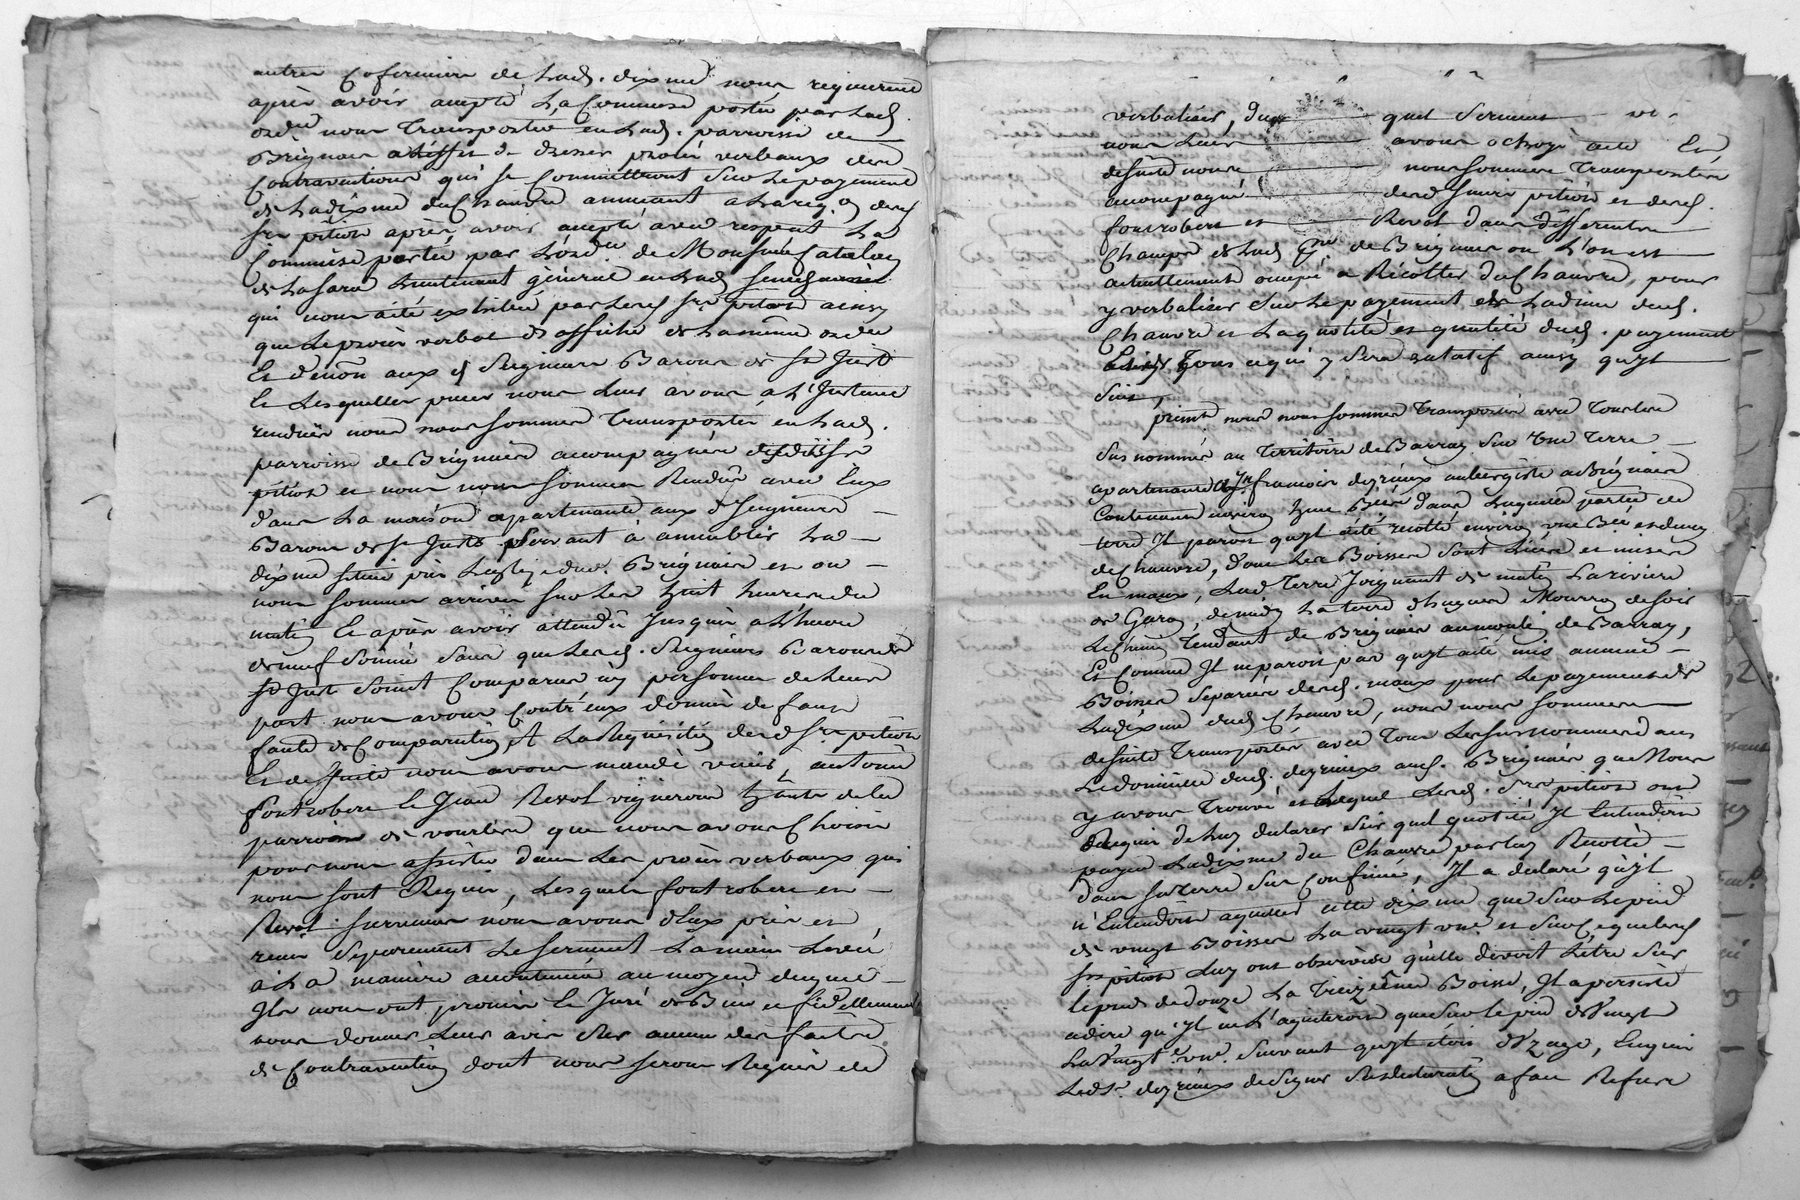 autres cofermiers de lad. dixme nous requierend
après avoir accepté la Commise portée par lad.
ordce nous transporter en lad. parroisse de
Brignais a l'effet de dresser procès verbeaux des
Contraventions qui se Commettront sur le payement
de ladixme du Chanvre
srs pition après avoir accepté avec respect la
Commise portée par l'ordce de Monsieur
de Lafarge Lieutenant général en lad. senechaussée
qui nous a été exhibée par lesd. srs pition ainsy
que le procès verbal d'affiche de la même ordce
Et denon aux d. Seigneurs Barons de St Just
Et lesquelles pieces nous leurs avons a l'Instance
rendües nous nous sommes transporté en lad.
parroisse de Brignais accompagnés desdits srs
pition et nous nous sommes Rendû avec Eux
dans la maison apartenante aux d. Seigneurs
Barons de St Just servant à amubler la
dixme située près Leglize dud. Brignais et ou
nous sommes arrivés sur les huit heures du
matin Et après avoir attendu jusqu'à l'heure
de neuf sonnée sans que lesd. Seigneurs Barons de
St Just soint Comparus ny personnes de leur
part nous avons contr'eux donné defaut
faute de Comparution A la Requisition desd srs pition
Et de suite nous avons mandé venir, antoine
fontrobert Et Jean Revol vignerons hants de la
parroisse de vourles que nous avons Choisis
pour nous assister dans les procès verbaux qui
nous sont Requis, lesquels fontrobert et
Revol survenus nous avons d'eux pris et
recus séparement le serment la main levée
à la manière accoutumée au moyen duquel
Ils nous ont promis Et Juré de Bien et fidellement
nous donner leurs avis sur aucuns des faits
de Contravention dont nous serons Requis de
verbaliser, du quel serment
nous leurs avons octroyé acte Et
de suite nous nous sommes transportés
accompagné desd sieurs pition et desd.
fontrobert et Revol dans differentes
Champs de lad. psse de Brignais ou l'on est
actuellement occupé a Récolter du Chanvre, pour
y verbaliser sur le payement de la dixme dud.
Chanvre et la quotité et quantité dud. payement
tous ce qui y sera relatif ainsy qu'yl
suit,
primt nous nous sommes transportés avec tous les
sus nommés au territoire de Barray sur une terre
apartenante a Sr francois dezrieux aubergiste a Brignais
Contenant environ une Bicherée dans laquelle partie de
terre Il paroit qu'yl a été recolté environ une Bicherée et demy
de Chanvre, dont les Boisses sont liées et mises
En maux, lad. terre Joignant de matin la riviere
de Garon, de midy la terre d'hugues Mourron de soir
le chemin tendant de Brignais au moulin de Barray,
Et Comme Il ne paroit pas qu'yl a été mis aucune
Boisse separée desd. maux pour le payement de
ladixme dud. Chanvre, nous nous sommes
de suite transportés avec tous les susnommés au
domicile dud. dezrieux aud. Brignais que nous
y avons trouvé et lequel lesd. srs pition ont
Requis de luy declarer sur quel quotité Il Entendoit
payer ladixme du Chanvre par luy Recolté
dans sa terre sus Confinée, Il a declaré qu'yl
n'Entendoit aquitter cette dixme que sur le pied
de vingt Boisses la vingt une et sur ce que lesd
srs pition luy ont observée qu'elle devoit l'être sur
le pied de douze la treizième Boisse, Il a persisté
a dire qu'yl ne l'aquitteroit que sur le pied de vingt
la vingt une suivant qu'yl étoit d'uzage, Enquis
ledt. dezrieux de signer sa declaration a fait Refus